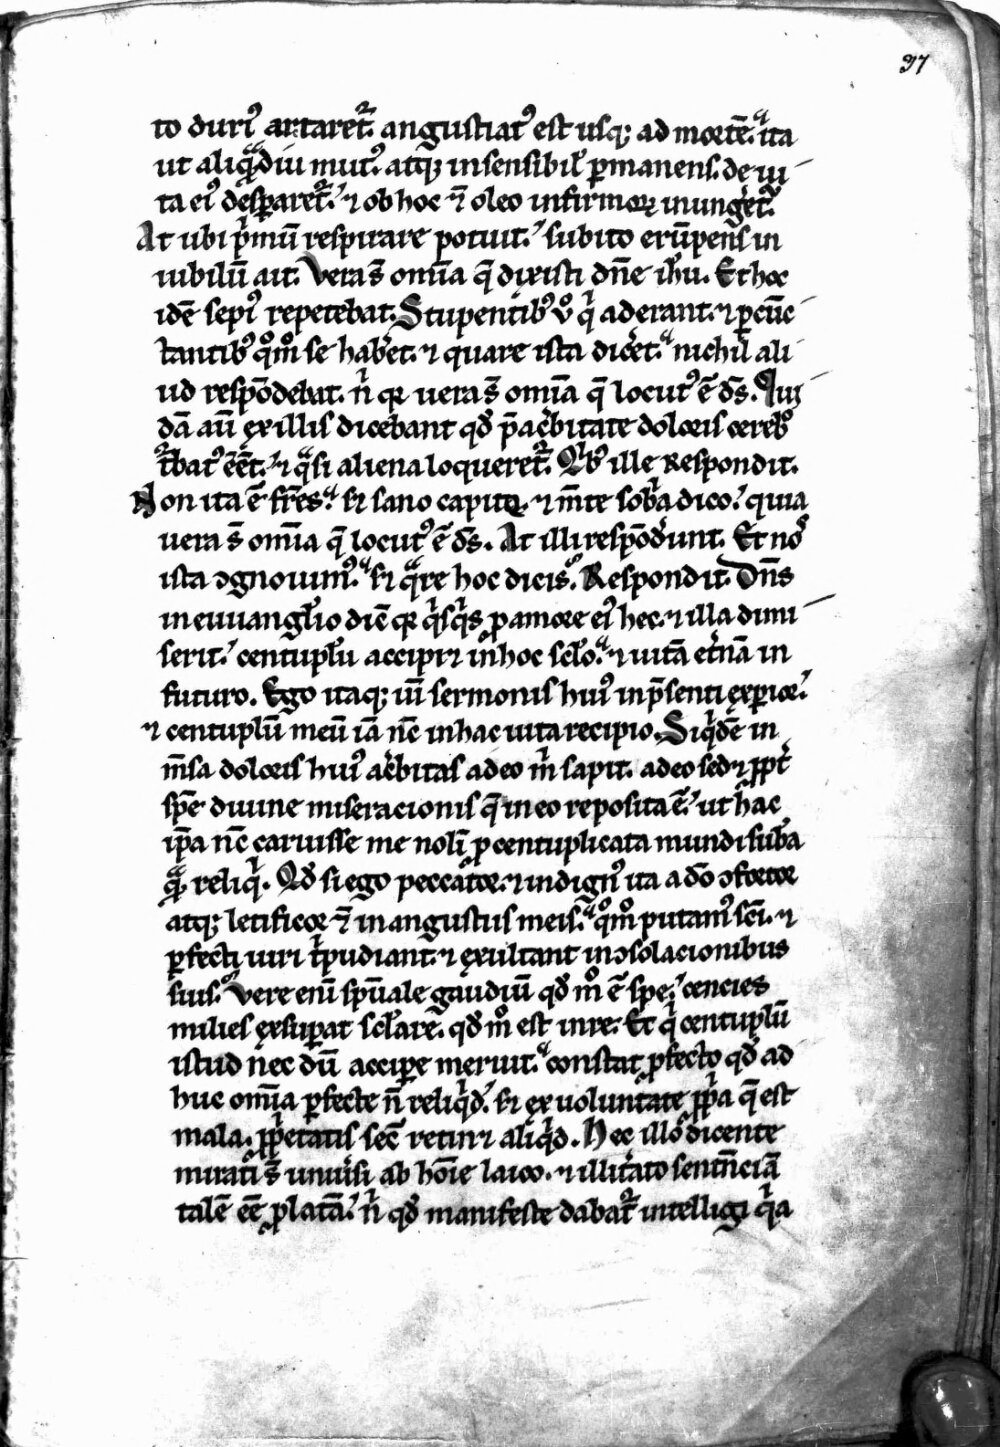 97
to duriꝰ artaretᷣ. angustiatꝰ est usqꝫ ad mortē. ita
ut aliqͣdiu mutꝰ. atqꝫ insensibil̕ ꝑmanens. de ui
ta eiꝰ despararetᷣ. ⁊ ob hoc ⁊ oleo infirmoꝝ inungeretᷣ.
At ubi pͥmū respirare potuit. subito erūpens in
iubilū ait. Vera sꝰ omīa q̄ dixisti dn̄e ih̄u. Et hoc
idē sepiꝰ repetebat. Stupentibꝰ v̊ qͥ aderant. ⁊ ꝑcūc
tantibꝰ qͦmͦ se haberet. ⁊ quare ista diceret. nichil ali
ud respōdebat. nͥ qꝛ uera sꝰ omīa q̄ locutꝰ ē dn̄s. Qui
dā aū ex illis dicebant qd̕ p̄ acerbitate doloris cerebꝰ
turbatꝰ eēt. ⁊ qͣsi aliena loqueretᷣ. Qͥbꝰ ille Respondit.
Non ita ē fr̄es. sꝫ sano capite. ⁊ m̄te sobria dico. quia
uera sꝰ omīa q̄ locutꝰ ē dn̄s. At illi respōderunt. Et nos
ista ꝯgnouimꝰ. sꝫ qͣre hoc dicis. Respondit. Dn̄s
in euuanglio dicē qꝛ qͥsqͥs ꝓ amore eiꝰ hec. ⁊ illa dimi
serit. centuplū accipiet in hoc scl̕o. ⁊ uitā eternā in
futuro. Ego itaqꝫ uim̄ sermonis huiꝰ in p̄senti experior.
⁊ centuplū meū iā nc̄ in hac uita recipio. Siqͥdē in
m̄sa doloris huiꝰ acerbitas adeo mͥ sapit. adeo sed⁊ ꝓpt̕
spē diuine miseracionis q̄ in eo reposita ē. ut hac
ip̄a nc̄ caruisse me nolī ꝓ centuplicata mundi sub̄a
qͣ reliqͥ. Qd̕ si ego peccator. ⁊ indignꝰ ita a dō ꝯfortor
atqꝫ letificor ⁊ in angustiis meis. qͦmͦ putamꝰ sc̄i. ⁊
ꝑfecti uiri tͥpudiant. ⁊ exultant in ꝯsolacionibus
suis. Vere enī spūale gaudiū qd̕ mͦ ē spe. cencies
milies exsuꝑat scl̕are. qd̕ mͦ est in re. Et qͥ centuplū
istud nec dū acciꝑe meruit. constat ꝓfecto qd̕ ad
huc omīa ꝑfecte n̄ reliqͥd. sꝫ ex voluntate ꝓpͥa q̄ est
mala. ꝓpͥetatis secū retinet aliqͥd. Hec illo dicente
mirati sꝰ uniuersi ab hoīe laico. ⁊ illitͥato sentenciā
talē eē ꝓlatā. nͥ qd̕ manifeste dabatᷣ intelligi qͥa